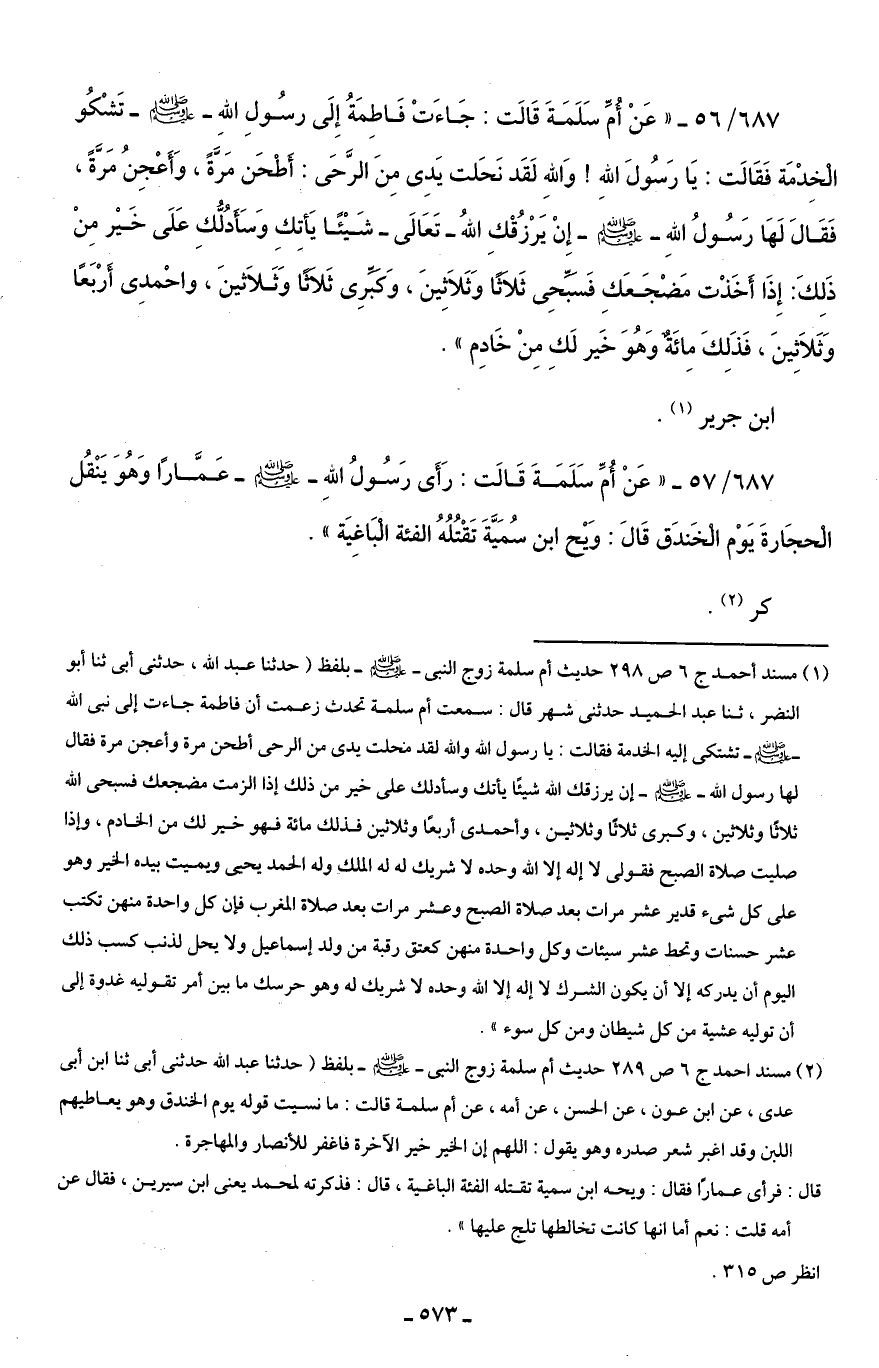 ٦٨٧/ ٥٦ ـ « عَنْ أُمِّ سَلَمَةَ قَالَت : جَاءَتْ فَاطِمَةُ إِلَى رسُولِ اللهِ ـ ﷺ ـ تَشْكُو
الْخِدْمَة فَقَالَت : يَا رَسُولَ اللهِ ! وَاللهِ لَقَد نَحَلت يَدِى مِنَ الرَّحَى : أَطْحَن مَرةً ، وَأَعْجِنُ مَرةً ،
فَقَالَ لَهَا رَسُولُ اللهِ ـ ﷺ ـ إِنْ يَرْزُقْكِ اللهُ ـ تَعَالَى ـ شَيْئًا يَأتك وَسَأَدُلُّكِ عَلَى خَيْرٍ مِنْ
ذَلِكَ: إِذَا أَخَذْت مَضْجَعَكِ فَسَبِّحِى ثَلاَثًا وَثَلاَثِينَ ، وَكَبِّرِى ثَلاَثًا وَثَلاَثينَ ، واحْمدِى أَرْبَعًا
وَثَلاَثِينَ ، فَذَلِكَ مِائَةٌ وَهُوَ خَير لَكِ مِنْ خَادِم » .
ابن جرير (١) .
٦٨٧/ ٥٧ ـ « عَنْ أُمِّ سَلَمَةَ قَالَت : رَأَى رَسُولُ اللهِ ـ ﷺ ـ عَمَّارًا وَهُوَ يَنْقُل
الْحجَارةَ يَوْم الْخَندَق قَالَ : وَيْح ابن سُمَيَّةَ تَقْتُلُهُ الفئة الْبَاغِيَة » .
كر (٢) .
(١) مسند أحمد ج ٦ ص ٢٩٨ حديث أم سلمة زوج النبى ـ ﷺ ـ بلفظ ( حدثنا عبد الله ، حدثنى أبى ثنا أبو
النضر ، ثنا عبد الحميد حدثنى شهر قال : سمعت أم سلمة تحدث زعمت أن فاطمة جاءت إلى نبى الله
ـ ﷺ ـ تشتكى إليه الخدمة فقالت : يا رسول الله والله لقد منحلت يدى من الرحى أطحن مرة وأعجن مرة فقال
لها رسول الله ـ ﷺ ـ إن يرزقك الله شيئًا يأتك وسأدلك على خير من ذلك إذا الزمت مضجعك فسبحى الله
ثلاثًا وثلاثين ، وكبرى ثلاثًا وثلاثين ، وأحمدى أربعًا وثلاثين فذلك مائة فهو خير لك من الخادم ، وإذا
صليت صلاة الصبح فقولى لا إله إلا الله وحده لا شريك له له الملك وله الحمد يحيى ويميت بيده الخير وهو
على كل شىء قدير عشر مرات بعد صلاة الصبح وعشر مرات بعد صلاة المغرب فإن كل واحدة منهن تكتب
عشر حسنات وتحط عشر سيئات وكل واحدة منهن كعتق رقبة من ولد إسماعيل ولا يحل لذنب كسب ذلك
اليوم أن يدركه إلا أن يكون الشرك لا إله إلا الله وحده لا شريك له وهو حرسك ما بين أمر تقوليه غدوة إلى
أن توليه عشية من كل شيطان ومن كل سوء » .
(٢) مسند احمد ج ٦ ص ٢٨٩ حديث أم سلمة زوج النبى ـ ﷺ ـ بلفظ ( حدثنا عبد الله حدثنى أبى ثنا ابن أبى
عدى ، عن ابن عون ، عن الحسن ، عن أمه ، عن أم سلمة قالت : ما نسيت قوله يوم الخندق وهو يعاطيهم
اللبن وقد اغبر شعر صدره وهو يقول : اللهم إن الخير خير الآخرة فاغفر للأنصار والمهاجرة .
قال : فرأى عمارًا فقال : ويحه ابن سمية تقتله الفئة الباغية ، قال : فذكرته لمحمد يعنى ابن سيرين ، فقال عن
أمه قلت : نعم أما انها كانت تخالطها تلج عليها » .
انظر ص ٣١٥ .
ـ ٥٧٣ ـ